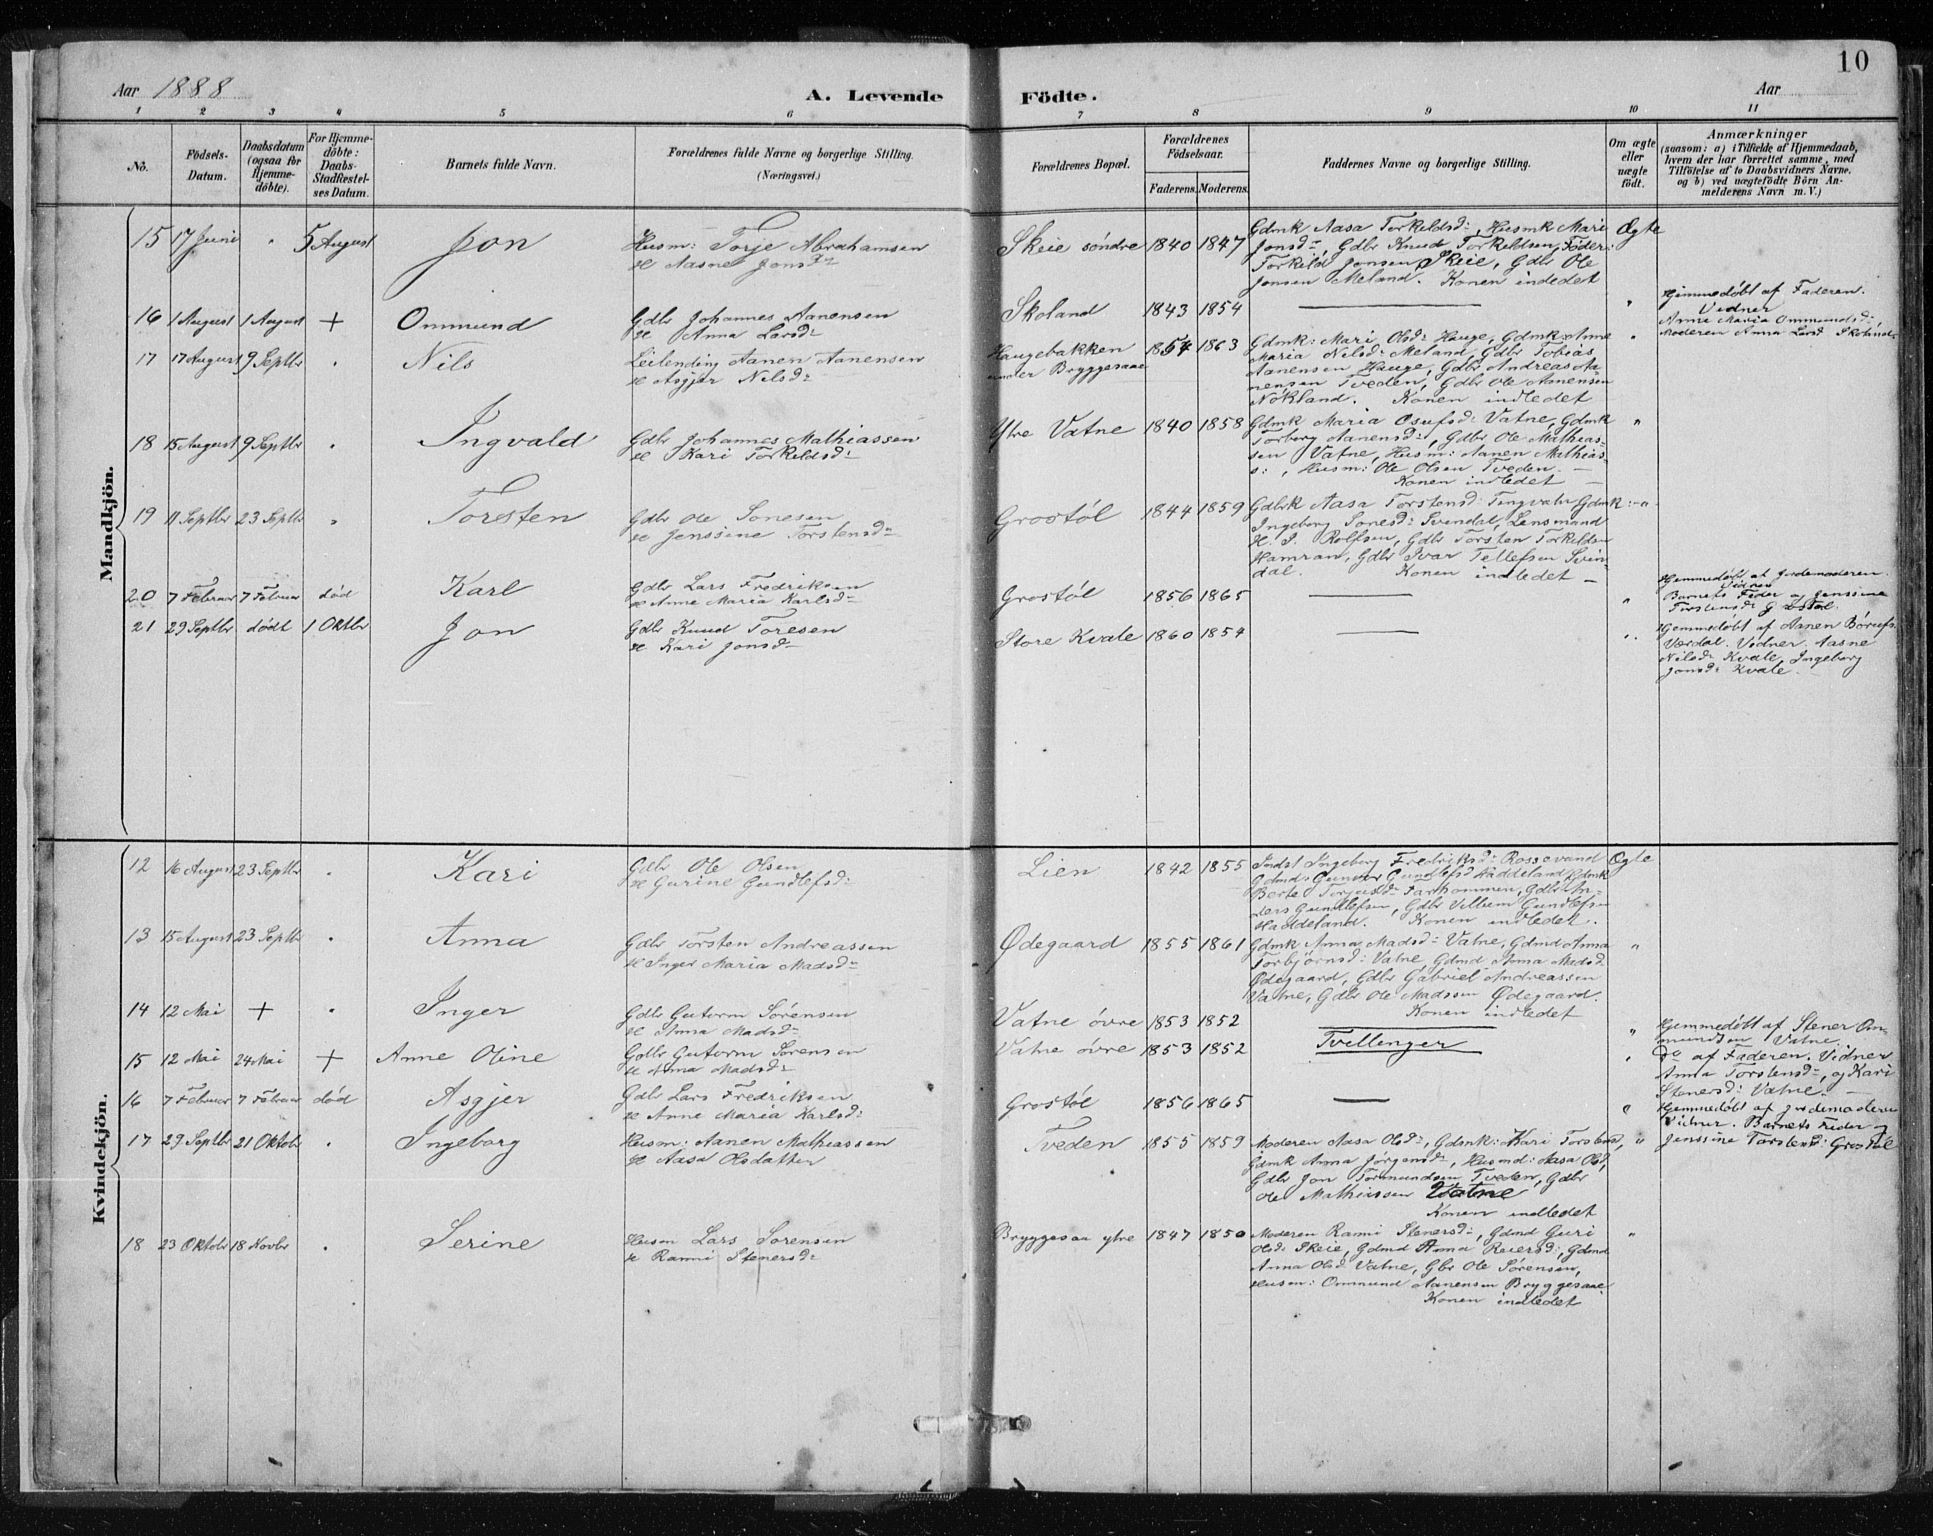 10
Aar 1888
A. Levende Födte.
Aar
1 2 3 4 5 6 7 8 9 10 11
No.
Födsels-Datum.
Daabsdatum (ogsaa for Hjemme-döbte).
For Hjemme-döbte: Daabs-Stadfæstel-ses Datum.
Barnets fulde Navn.
Forældrenes fulde Navne og borgerlige Stilling.
(Næringsvei.)
Forældrenes Bopæl.
Forældrenes Födselsaar.
Faderens. Moderens.
Faddernes Navne og borgerlige Stilling.
Om ægte eller uægte födt.
Anmærkninger
(saasom: a) i Tilfælde af Hjemmedaab,
hvem der har forrettet samme, med
Tilföielse af to Daabsvidners Navne,
og b) ved uægtefödte Börn An-
melderens Navn m. V.)
Mandkjön.
15 17 Juni " 5 August Jon
Husm: Torje Abrahamsen
H Aasne Jonsd:
Skeie söndre 1840 1847
Gdmk Aasa Torkeldsd:, Husmk Mari
Jonsd:, Gdbr Knud Torkeldsen, Föder:
Torkild Jonsen Skeie, Gdbr Ole
Jonsen Meland. Konen indledet
Ægte
16 1 August 1 August + Ommund
Gdbr Johannes Aanensen
H Anna Larsd:
Skoland 1843 1854 — "
Hjemmedöbt af Faderen.
Vidner
Anne Maria Ommundsd:
Moderen Anna Larsd Skoland
17 17 August 9 Septbr " Nils
Leilending Aanen Aanensen
H Asgjer Nilsd:
Haugebakken
under Bryggesaae
1857 1863
Gdmk: Mari Olsd: Hauge, Gdmk: Anne
Maria Nilsd: Meland, Gdbr Tobias
Aanensen Hauge, Gdbr Andreas Aa-
nensen Tveden, Gdbr Ole Aanensen
Nökland. Konen indledet
"
18 15 August 9 Septbr " Ingvald
Gdbr Johannes Mathiassen
H Kari Torkeldsd:
Ytre Vatne 1840 1858
Gdmk Maria Osufsd: Vatne, Gdmk
Torberg Aanensd:, Gdbr Ole Mathias-
sen Vatne, Husm: Aanen Mathias-
s:, Husm: Ole Olsen Tveden. —
Konen indledet —
"
19 11 Septbr 23 Septbr " Torsten
Gdbr Ole Sonesen
H Jenssine Torstensd:
Grostöl 1844 1859
Gdbrk Aasa Torstensd: Tingvatn Gdmk: "
Ingeborg Sonesd: Svendal, Lensmand
H. S. Rolfsen, Gdbr Torsten Torkildsen
Hamran, Gdbr Ivar Tellefsen Svin-
dal. Konen indledet —
20 7 Februar 7 Februar död Karl
Gdbr Lars Fredriksen
H Anne Maria Karlsd:
Grostöl 1856 1865 — "
Hjemmedöbt af Jordemoderen.
Vidner
Barnets Fader og Jenssine
Torstensd: Grostöl.
21 29 Septbr dödt 1 Oktbr Jon
Gdbr Knud Toresen
H Kari Jonsd:
Store Kvale 1860 1854 — "
Hjemmedöbt af Aanen Börufs.
Værdal. Vidner Aasne
Nilsd: Kvale, Ingeborg
Jonsd: Kvale.
Kvindekjön.
12 16 August 23 Septbr " Kari
Gdbr Ole Olsen
H Gurine Gundlefsd:
Lien 1842 1855
Indst Ingeborg Fredriksd: Rossevand
Gdmd: Gunvor Gundlefsd Haddeland, Gdmk
Berte Torjusd: Farhommen, Gdbr An-
ders Gundlefsen, Gdbr Villum Gundlefsen
Haddeland. Konen indledet.
Ægte
13 15 August 23 Septbr " Anna
Gdbr Torsten Andreassen
H Inger Maria Madsd:
Ødegaard 1855 1861
Gdmk Anna Madsd: Vatne, Gdmd Anna
Torbjörnsd: Vatne, Gdmd Anna Madsd
Ødegaard, Gdbr Gabriel Andreassen
Vatne, Gdbr Ole Madssen Ødegaard.
Konen indledet
"
14 12 Mai + " Inger
Gdbr Gutorm Sörensen
H Anna Madsd:
Vatne övre 1853 1852
Tvellinger
"
Hjemmedöbt af Stener Om-
mundsen Vatne.
15 12 Mai 24 Mai + Anne Oline
Gdbr Gutorm Sörensen
H Anna Madsd:
Vatne övre 1853 1852 "
Do af Faderen. Vidner
Anna Torstensd:, og Kari
Stenersd: Vatne. —
16 7 Februar 7 Februar död Asgjer
Gdbr Lars Fredriksen
H Anne Maria Karlsd:
Grostöl 1856 1865 — "
Hjemmedöbt af Jordemoderen
Vidner. Barnets Fader og
Jenssine Torstensd: Grostöl
17 29 Septbr 21 Oktobr " Ingeborg
Husm: Aanen Mathiassen
H Aasa Olsdatter
Tveden 1855 1859
Moderen Aasa Olsd:, Gdmk: Kari Torstensd, "
Gdmk Anna Jörgensd:, Husmd: Aasa Olsd,
Gdbr Jon Tormundsen Tveden, Gdbr
Ole Mathiassen Vatne
Konen indledet
18 23 Oktobr 18 Novbr " Serine
Husm Lars Sörensen
H Ranni Stenersd:
Bryggesaa ytre 1847 1850
Moderen Ranni Stenersd:, Gdmd Guri
Olsd: Skeie, Gdmd Anna Reiersd:, Gdmd
Anna Olsd Vatne, Gbr Ole Sörensen,
Husm: Ommund Aanensen Bryggesaae
Konen indledet
"